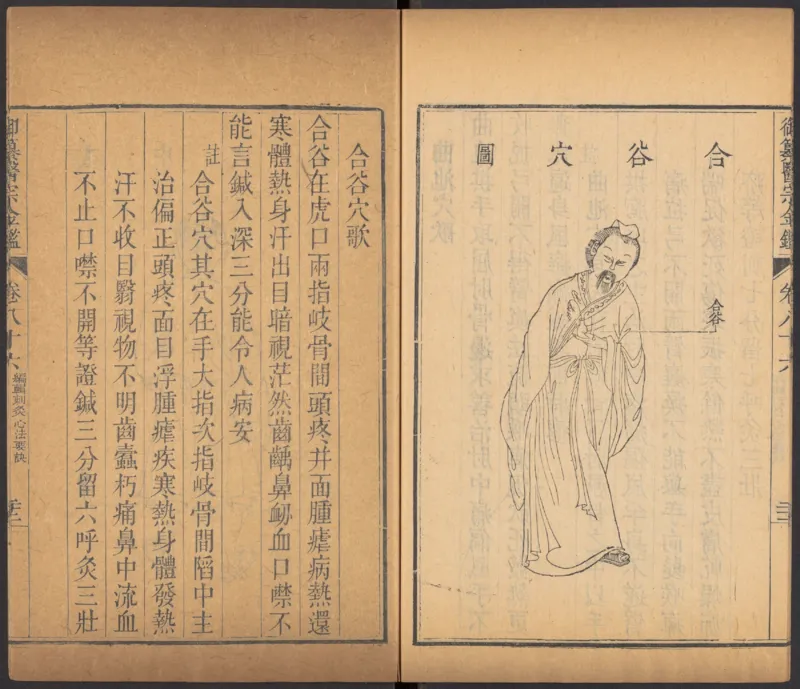 御纂醫宗金鑑
卷八十六
合谷穴圖
合谷
合谷穴歌
合谷在虎口兩指岐骨間頭疼并面腫瘧病熱還
寒體熱身汗出目暗視茫然齒齲鼻衂血口噤不
能言鍼入深三分能令人病安
註合谷穴其穴在手大指次指岐骨間陷中主
治偏正頭疼面目浮腫瘧疾寒熱身體發熱
汗不收目翳視物不明齒蠹朽痛鼻中流血
不止口噤不開等證鍼三分留六呼灸三壯
御纂醫宗金鑑
卷八十六
編輯刺灸心法要訣